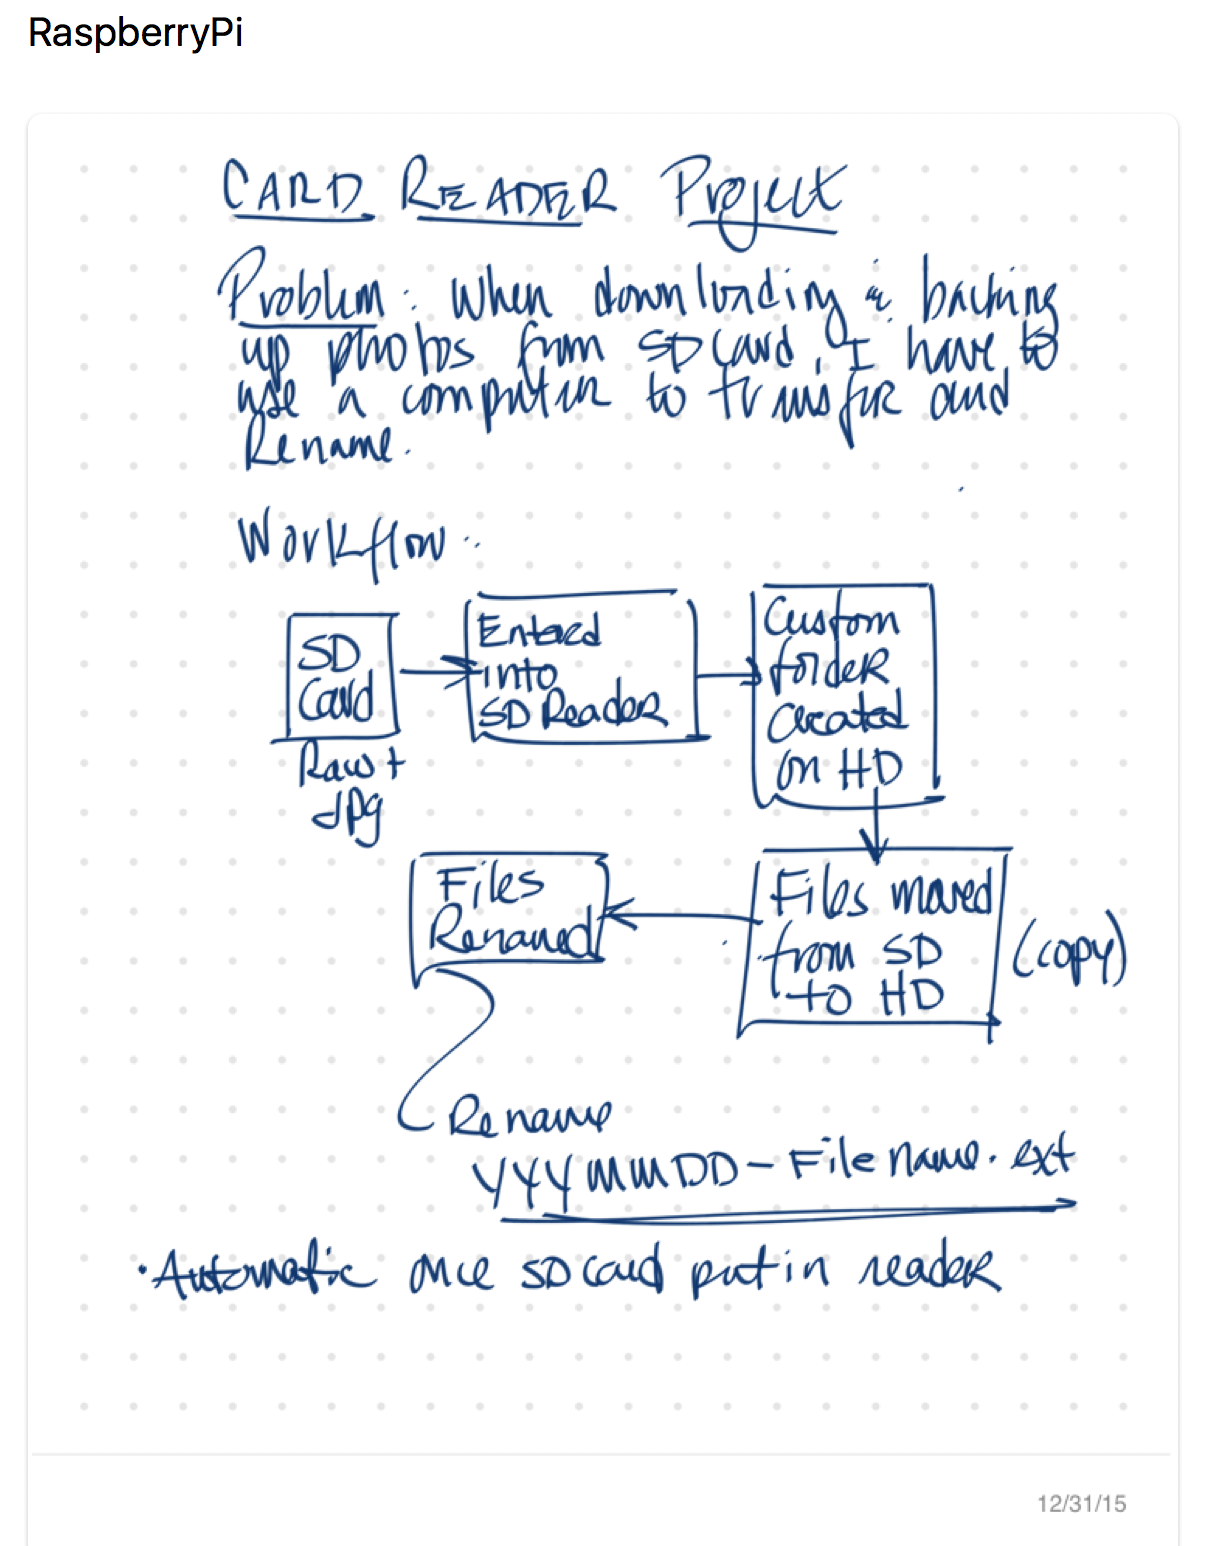 RaspberryPi
CARD READER Project
Problem: When downloading & backing
up photos from SD Card, I have to
use a computer to transfer and
Rename.
Workflow:
SD
Card
Raw +
Jpg
Entered
into
SD Reader
Custom
folder
Created
on HD
Files moved
from SD
to HD
(copy)
Files
Renamed
Rename
YYYMMDD-Filename.ext
• Automatic once SD card put in reader
12/31/15